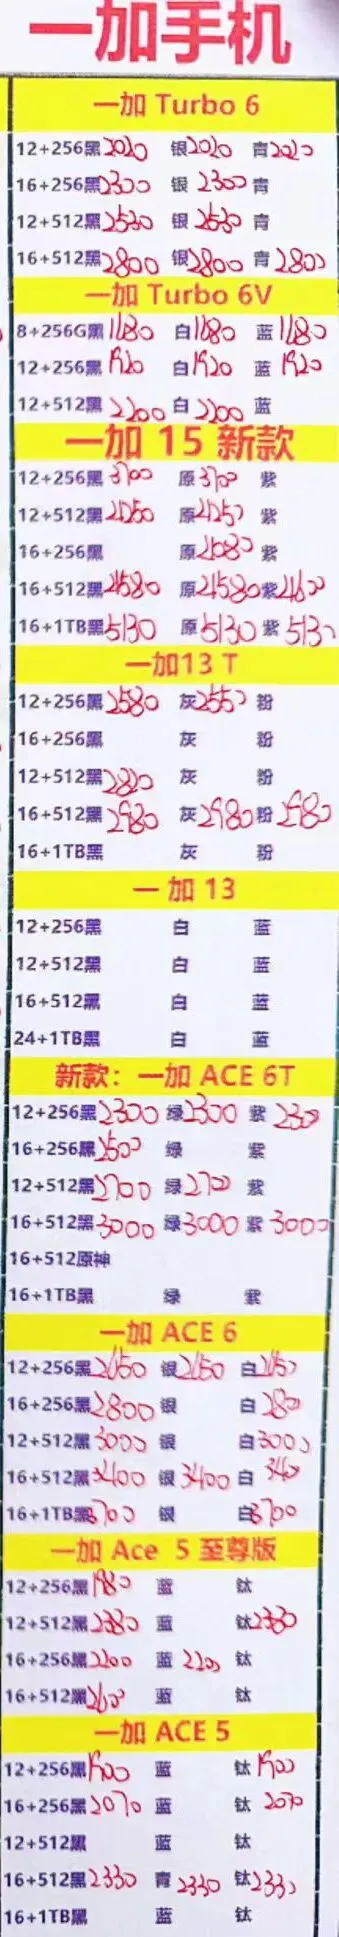 一加手机
一加 Turbo 6
12+256黑2020 银2020 青2020
16+256黑2300 银2300 青
12+512黑2530 银2530 青
16+512黑2800 银2800 青2800
一加 Turbo 6V
8+256G黑1680 白1680 蓝1680
12+256黑1920 白1920 蓝1920
12+512黑2200 白2200 蓝
一加 15 新款
12+256黑3700 原3700 紫
12+512黑4250 原4250 紫
16+256黑 原4080 紫
16+512黑4580 原4580 紫4600
16+1TB黑5130 原5130 紫5130
一加13 T
12+256黑2580 灰2550 粉
16+256黑 灰 粉
12+512黑2820 灰 粉
16+512黑2980 灰2980 粉2980
16+1TB黑 灰 粉
一加 13
12+256黑 白 蓝
12+512黑 白 蓝
16+512黑 白 蓝
24+1TB黑 白 蓝
新款：一加 ACE 6T
12+256黑2300 绿2300 紫2300
16+256黑2500 绿 紫
12+512黑2700 绿2700 紫
16+512黑3000 绿3000 紫3000
16+512原神
16+1TB黑 绿 紫
一加 ACE 6
12+256黑2650 银2650 白2650
16+256黑2800 银 白2800
12+512黑3000 银 白3000
16+512黑3400 银3400 白3400
16+1TB黑3700 银 白3700
一加 Ace 5 至尊版
12+256黑1980 蓝 钛
12+512黑2380 蓝 钛2380
16+256黑2200 蓝2200 钛
16+512黑2600 蓝 钛
一加 ACE 5
12+256黑1900 蓝 钛1900
16+256黑2070 蓝 钛2070
12+512黑 蓝 钛
16+512黑2330 青2330 钛2330
16+1TB黑 蓝 钛